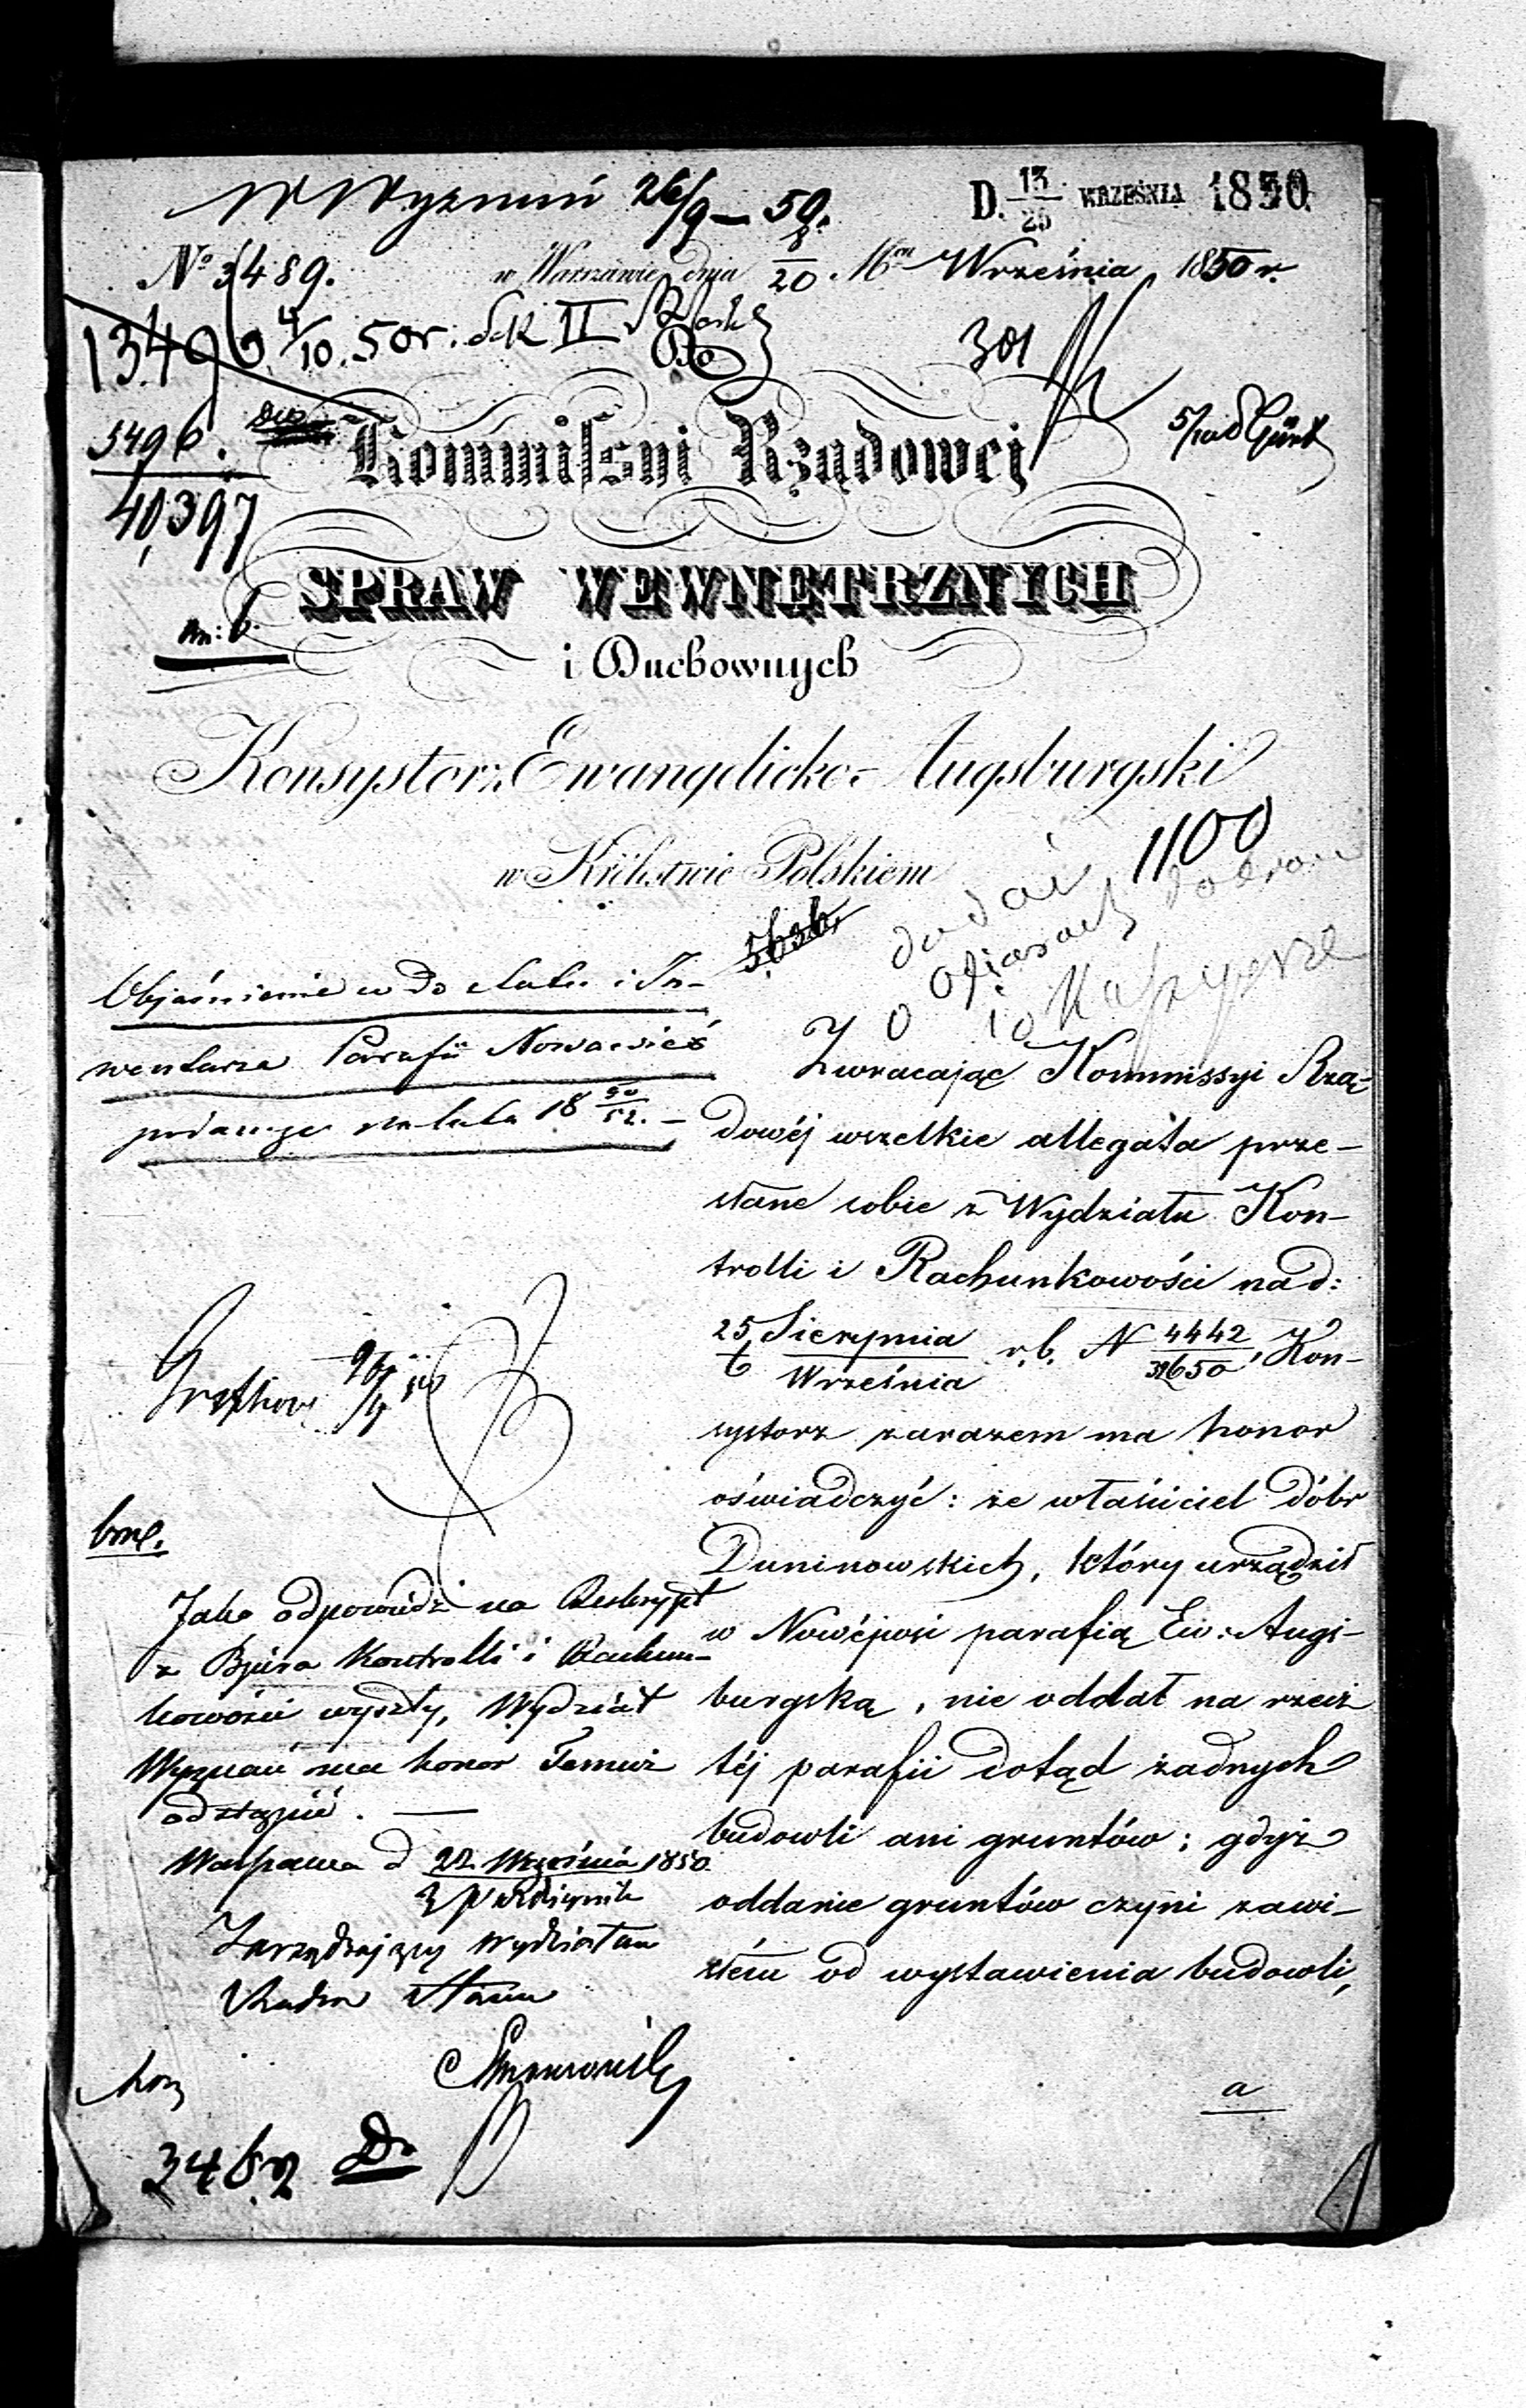 W Wyznań 26/9 – 50.
D. 13/25 WRZEŚNIA 1850.
№ 3489. w Warszawie dnia 8/20 Mca Września 1850 r.
13496 4/10. 50 r. Sek II
301
5/paź
5496.
Kommissyi Rządowej
40,397
SPRAW WEWNĘTRZNYCH
i Duchownych
Konsystorz Ewangelicko-Augsburgski
w Królestwie Polskiem
1100
dodać
o ofiarach
5636
Objaśnienie do etatu i In-
wentarza Parafii Nowawieś
podanego na lata 18 50/52. –
Zwracając Kommissyi Rzą-
dowéj wszelkie allegata prze-
słane sobie z Wydziału Kon-
trolli i Rachunkowości nad:
25 Sierpnia / 6 Września r. b. N 4442/32650, Kon-
systorz zarazem ma honor
oświadczyć: że właściciel dóbr
Duninowskich, który urządził
w Nowéjwsi parafią Ew: Augs-
burgską, nie oddał na rzecz
téj parafii dotąd żadnych
budowli ani gruntów; gdyż
oddanie gruntów czyni zawi-
słém od wystawienia budowli,
a
brl.
Jako odpowiedź na Reskrypt
z Bjura Kontrolli i Rachun-
kowości wyszły, Wydział
Wyznań ma honor Temuż
odstąpić. —
Warszawa d 22 Września 1850 / 4 Października
Zarządzający Wydziałem
Radca Stanu
3462